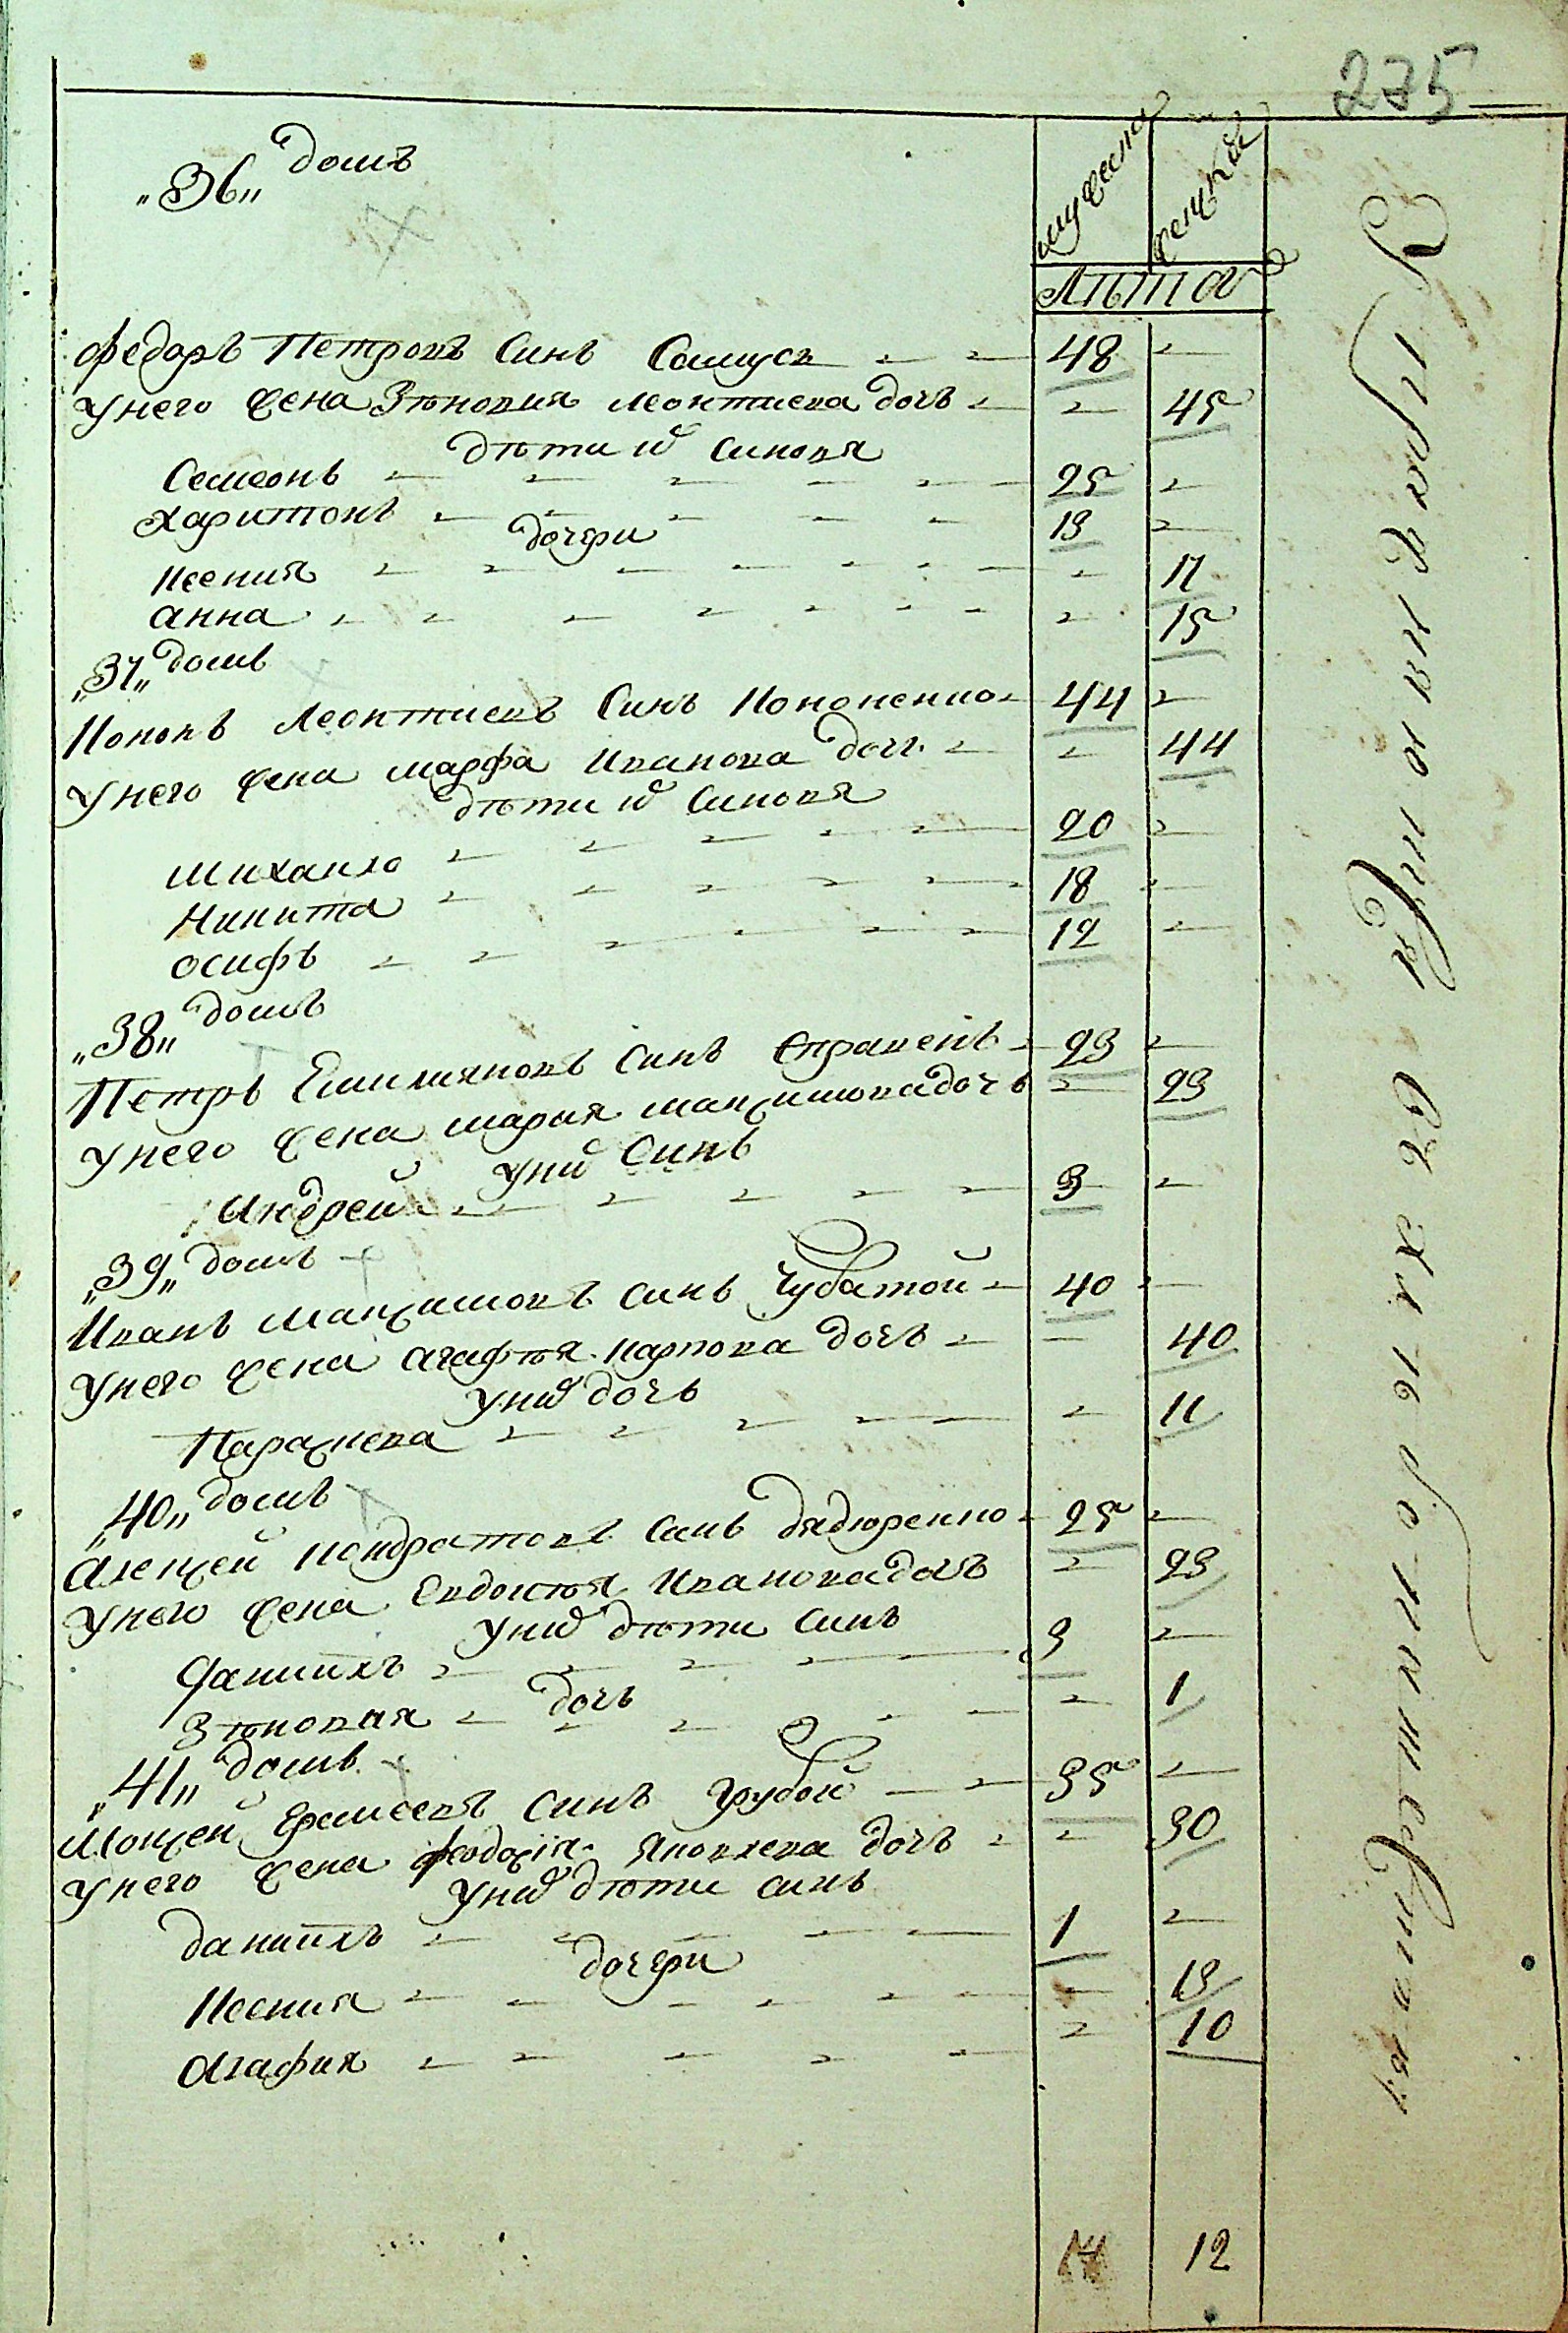 275
„36„ домъ
мужеска
женска
Лѣта
Федоръ Петровъ Синъ Самусь 48
Унего жена Зѣновия Леонтиева дочь 45
дѣти их Синовя
Семеонъ 25
Харитонъ 13
дочери
Ксения 17
Анна 15
„37„ домъ
Кононъ Леонтиевъ Синъ Кононенко 44
Унего жена марфа Иванова дочь 44
дѣти их Синовя
Михаило 20
Никита 18
Осифъ 12
„38„ домъ
Петръ Емилияновъ Синъ 23
Унего жена мария маѯимова дочь 23
Уних Синъ
Андрей 3
„39„ домъ
Иванъ Маѯимовъ Синъ Чубатой 40
Унего жена Агафѣя Карпова дочь 40
Уних дочь
Параѯиева 11
„40„ домъ
Алеѯей Кондратовъ Синъ Дядюренко 25
Унего жена Евдокѣя Иванова дочь 23
Уних дѣти Синъ
Даниилъ 3
дочь
Зѣновия 1
„41„ домъ
Моѵсей Еремеевъ Синъ Грубой 35
Унего жена феодосія Яковлева дочь 30
Уних дѣти синъ
Даниилъ 1
дочери
Ксения 13
Агафия 10
14 12